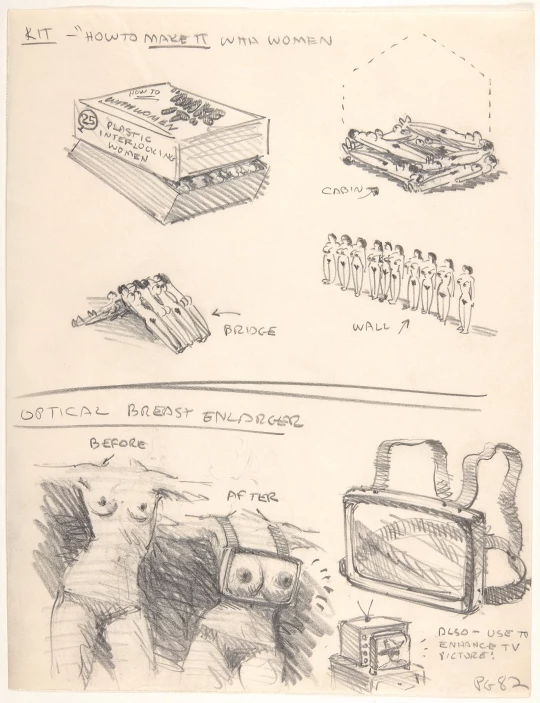 KIT - "HOW TO MAKE IT WITH WOMEN
HOW TO
"MAKE
IT"
WITH WOMEN
25
PLASTIC
INTERLOCKING
WOMEN
CABIN
BRIDGE
WALL
OPTICAL BREAST ENLARGER
BEFORE
AFTER
ALSO - USE TO
ENHANCE TV
PICTURE!
PG 82